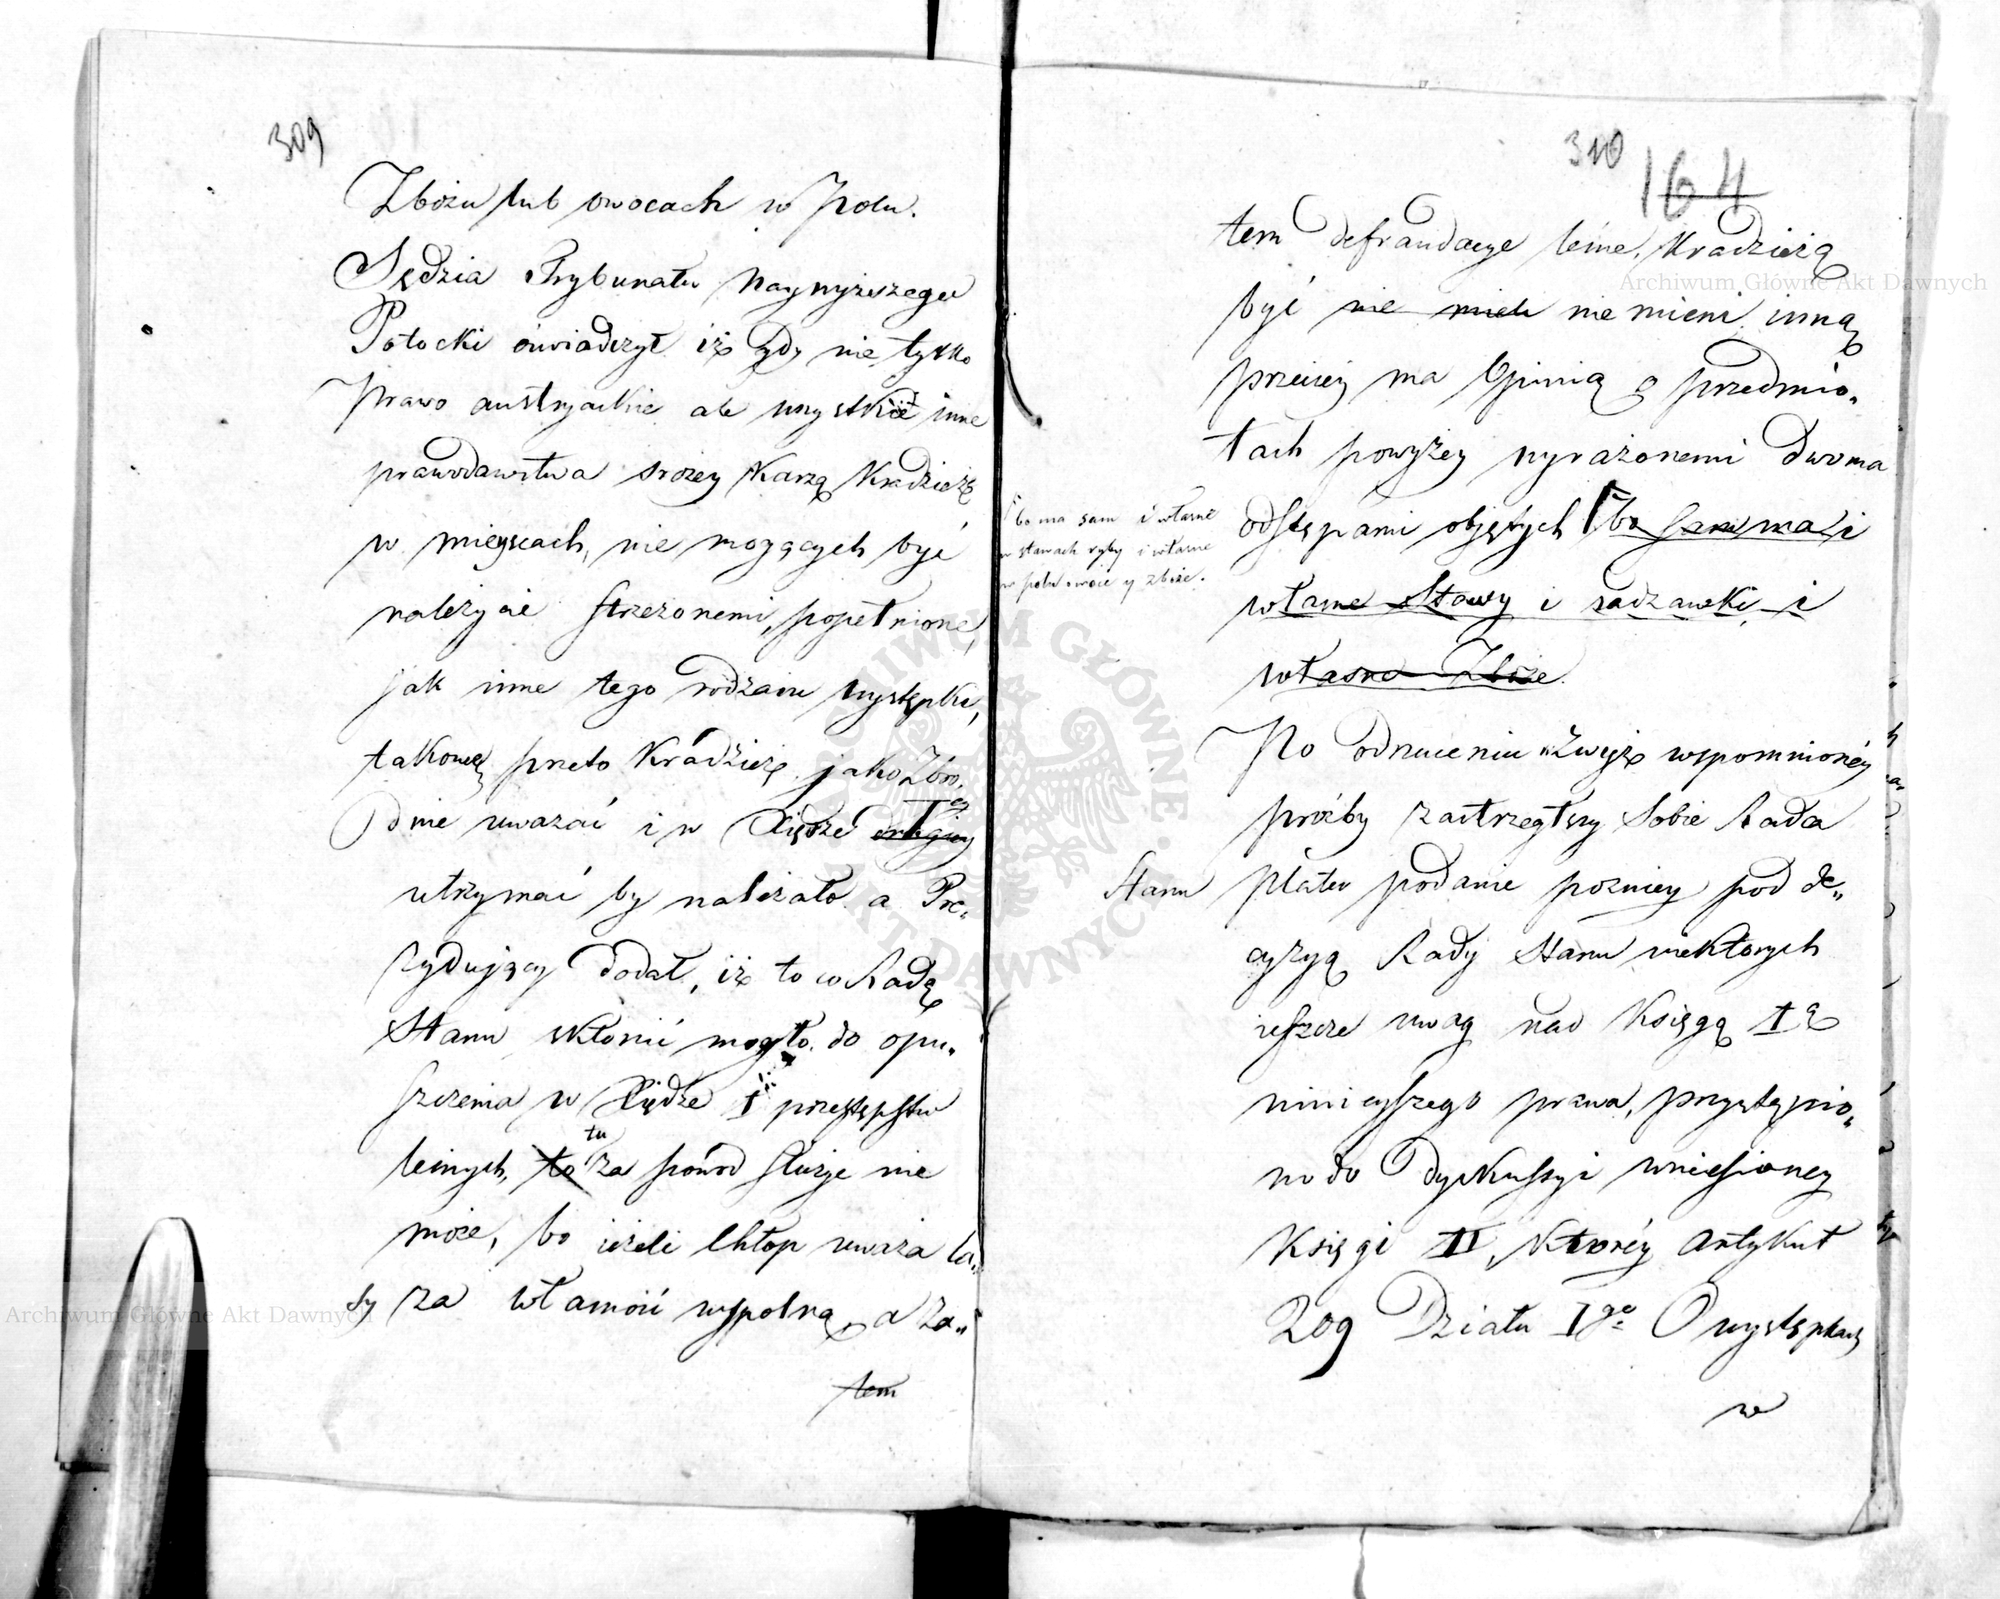 309
Zbożu lub owocach w Polu.
Sędzia Trybunału Naywyższego
Potocki oświadczył iż gdy nie tylko
Prawo austryackie ale wszystkie inne
prawodawstwa srożey karzą kradzieżę
w mieyscach, nie mogących być
należycie strzeżonemi, popełnione,
jak inne tego rodzaiu występki,
takową przeto kradzież jako Zbro,,
dnie uważać i w Xiędze Iey
utrzymać by należało a Pre,,
zydujący dodał, iż to co Radę
Stanu skłonić mogło do opu,,
szczenia w Xiędze I przestępstw
leśnych, tu za powód służyć nie
może, bo ieżeli Chłop uważa la,,
sy za własność wspolną, a za,,
tem
310
164
tem defraudacye leśne, Kradzieżą
być nie mieni, inną
przeciey ma Opinią o przedmio,,
tach powyżey wyrażonemi dwoma
odstępami objętych bo sam ma i
własne Stawy i sadzawki, i
własne Zboże.
bo ma sam i własne
w stawach ryby i własne
w polu owoce y zboże.
Po odrzuceniu zwyż wspomnioney
prośby zastrzegłszy Sobie Rada
Stanu podanie pozniey pod de,,
cyzyą Rady Stanu niektorych
ieszcze uwag nad Księgą Ią
ninieyszego prawa, przystąpio,,
no do Dyskussyi wniesioney
Księgi II, którey Artykuł
209 Działu Igo O występkach
w
Archiwum Główne Akt Dawnych
Archiwum Główne Akt Dawnych
ARCHIWUM GŁÓWNE AKT DAWNYCH